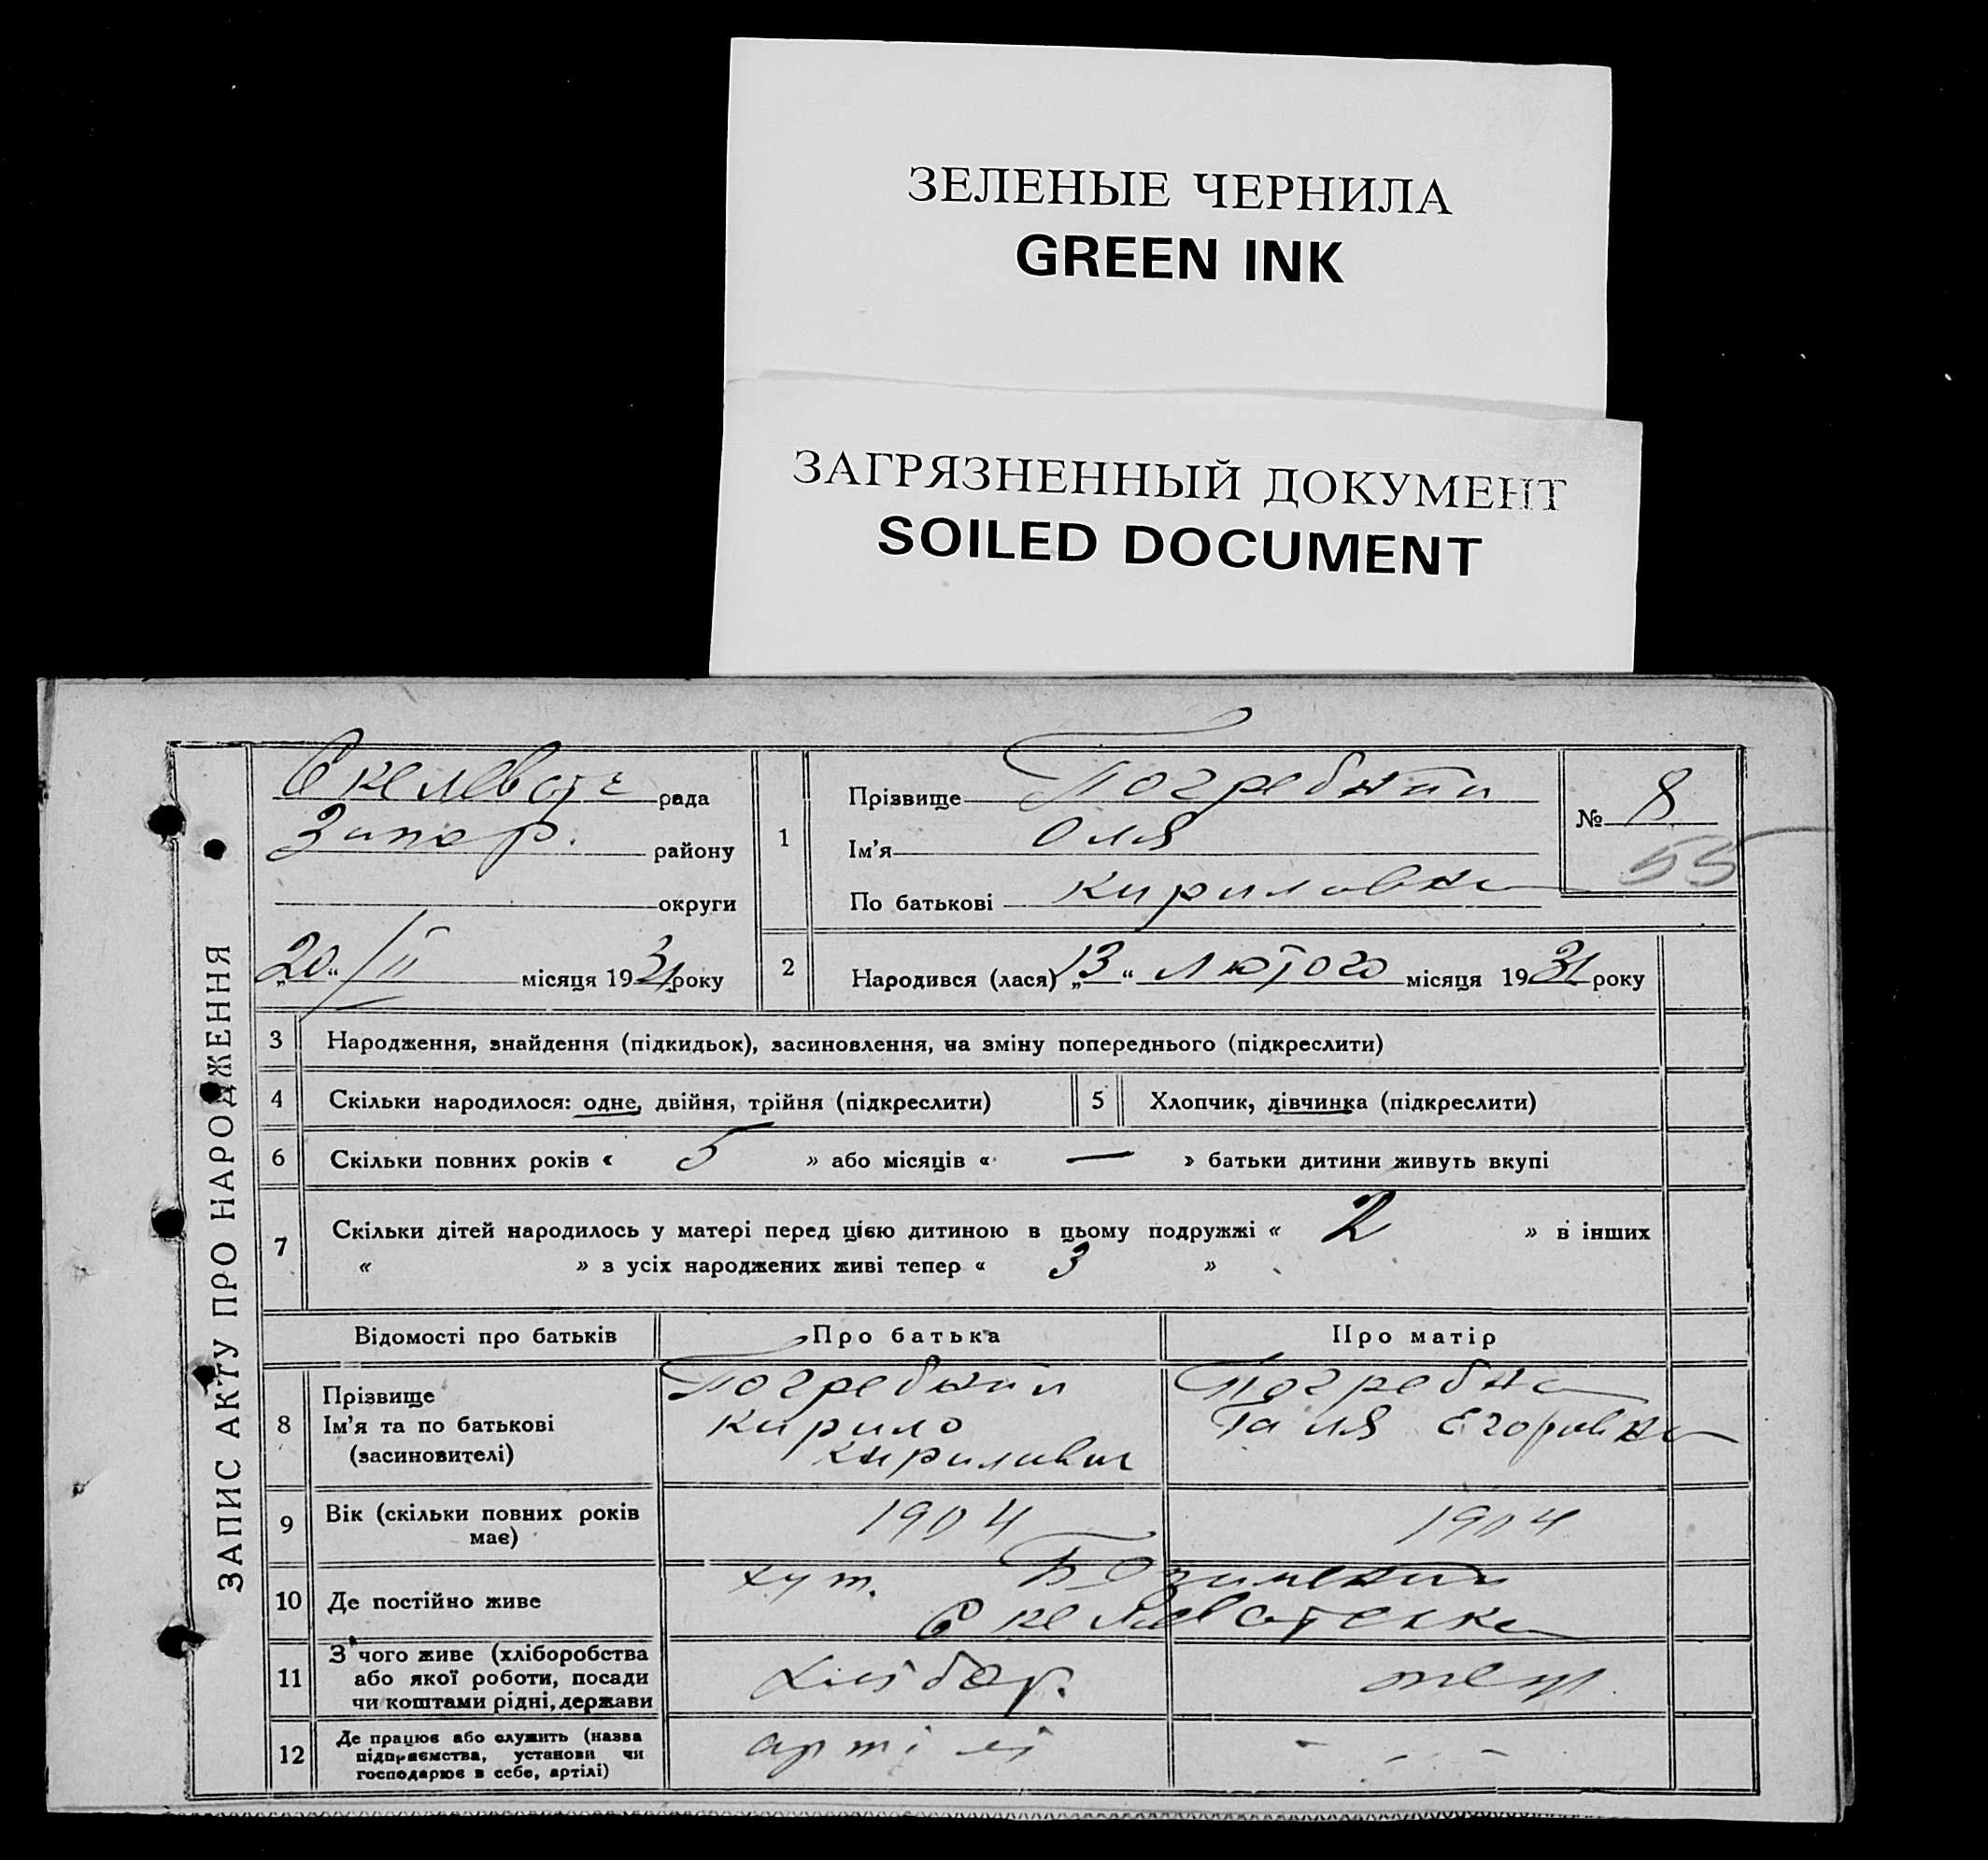 ЗЕЛЕНЫЕ ЧЕРНИЛА
GREEN INK
ЗАГРЯЗНЕННЫЙ ДОКУМЕНТ
SOILED DOCUMENT
ЗАПИС АКТУ ПРО НАРОДЖЕННЯ
рада
Запор. району
округи
„20“ /II місяця 1931 року
1
Прізвище Погребний
Ім'я Оля
По батькові Кириловна
№ 8
55
2 Народився (лася) „13“ Лютого місяця 1931 року
3 Народження, знайдення (підкидьок), засиновлення, на зміну попереднього (підкреслити)
4 Скільки народилося: одне, двійня, трійня (підкреслити) 5 Хлопчик, дівчинка (підкреслити)
6 Скільки повних років « 5 » або місяців « — » батьки дитини живуть вкупі
7 Скільки дітей народилось у матері перед цією дитиною в цьому подружжі « 2 » в інших
« » з усіх народжених живі тепер « 3 »
Відомості про батьків Про батька Про матір
8 Прізвище Погребний Погребна
Ім'я та по батькові Кирило Галя Егоровна
(засиновителі) Кирилович
9 Вік (скільки повних років має) 1904 1904
10 Де постійно живе хут.
Скелеватська
11 З чого живе (хліборобства
або якої роботи, посади
чи коштами рідні, держави
Хлібор.
12 Де працює або служить (назва
підприємства, установи чи
господарює в себе, артілі)
артілі - - - -